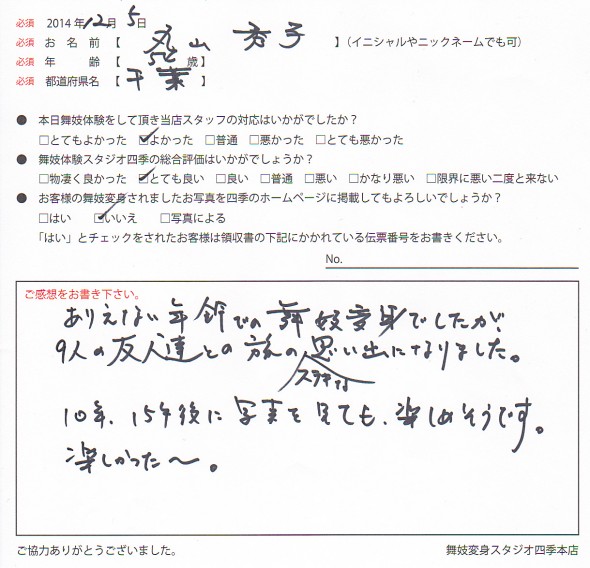 必須 2014年12月5日
必須 お名前【 丸山 秀子 】(イニシャルやニックネームでも可)
必須 年 齢【 52 歳】
必須 都道府県名【 千葉 】
● 本日舞妓体験をして頂き当店スタッフの対応はいかがでしたか?
□とてもよかった ☑よかった □普通 □悪かった □とても悪かった
● 舞妓体験スタジオ四季の総合評価はいかがでしょうか?
□物凄く良かった ☑とても良い □良い □普通 □悪い □かなり悪い □限界に悪い二度と来ない
● お客様の舞妓変身されましたお写真を四季のホームページに掲載してもよろしいでしょうか?
□はい ☑いいえ □写真による
「はい」とチェックをされたお客様は領収書の下記にかかれている伝票番号をお書きください。
No.
ご感想をお書き下さい。
ありえない年齢での舞妓変身でしたが、
9人の友人達との旅の思い出になりました。
ステキな
10年、15年後に写真を見ても、楽しめそうです。
楽しかった〜。
ご協力ありがとうございました。
舞妓変身スタジオ四季本店